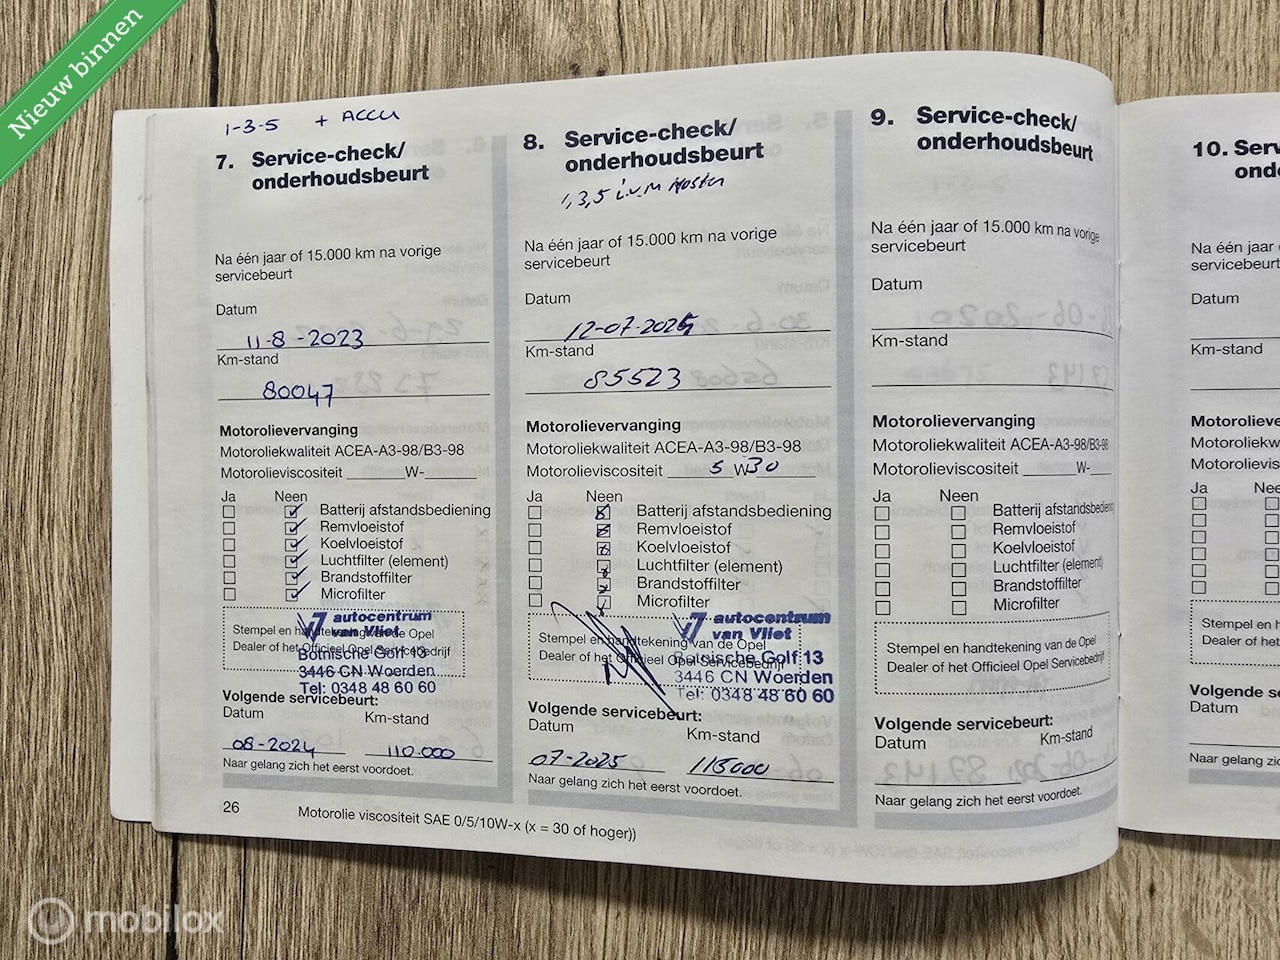 Nieuw binnen
1-3-5 + ACCU
7. Service-check/
onderhoudsbeurt
Na één jaar of 15.000 km na vorige
servicebeurt
Datum
11-8-2023
Km-stand
80047
Motorolievervanging
Motoroliekwaliteit ACEA-A3-98/B3-98
Motorolieviscositeit ______W-______
Ja Neen
Batterij afstandsbediening
Remvloeistof
Koelvloeistof
Luchtfilter (element)
Brandstoffilter
Microfilter
Stempel en handtekening van de Opel
Dealer of het Officieel Opel Servicebedrijf
autocentrum
van Vliet
Botnische Golf 13
3446 CN Woerden
Tel: 0348 48 60 60
Volgende servicebeurt:
Datum Km-stand
08-2024 110.000
Naar gelang zich het eerst voordoet.
26
8. Service-check/
onderhoudsbeurt
1,3,5 i.v.m kosten
Na één jaar of 15.000 km na vorige
servicebeurt
Datum
12-07-2024
Km-stand
85523
Motorolievervanging
Motoroliekwaliteit ACEA-A3-98/B3-98
Motorolieviscositeit 5 W30
Ja Neen
Batterij afstandsbediening
Remvloeistof
Koelvloeistof
Luchtfilter (element)
Brandstoffilter
Microfilter
Stempel en handtekening van de Opel
Dealer of het Officieel Opel Servicebedrijf
autocentrum
van Vliet
Botnische Golf 13
3446 CN Woerden
Tel: 0348 48 60 60
Volgende servicebeurt:
Datum Km-stand
07-2025 115000
Naar gelang zich het eerst voordoet.
Motorolie viscositeit SAE 0/5/10W-x (x = 30 of hoger))
9. Service-check/
onderhoudsbeurt
Na één jaar of 15.000 km na vorige
servicebeurt
Datum
Km-stand
Motorolievervanging
Motoroliekwaliteit ACEA-A3-98/B3-98
Motorolieviscositeit ______W-____
Ja Neen
Batterij afstandsbediening
Remvloeistof
Koelvloeistof
Luchtfilter (element)
Brandstoffilter
Microfilter
Stempel en handtekening van de Opel
Dealer of het Officieel Opel Servicebedrijf
Volgende servicebeurt:
Datum Km-stand
Naar gelang zich het eerst voordoet.
10. Serv
ond
Na één jaar
servicebeurt
Datum
Km-stand
Motorolieve
Motoroliekw
Motorolievis
Ja Nee
Stempel en h
Dealer of he
Volgende se
Datum
Naar gelang zic
mobilox